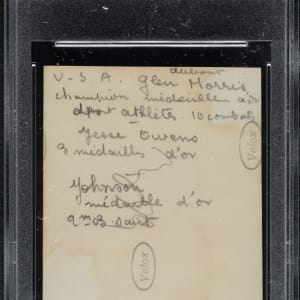 debout
U-S A. Glen Morris,
champion médaille d'or
athlète. 10 combats
Jesse Owens
3 médailles d'or
Johnson
médaille d'or
2m03 saut
Velox
Velox